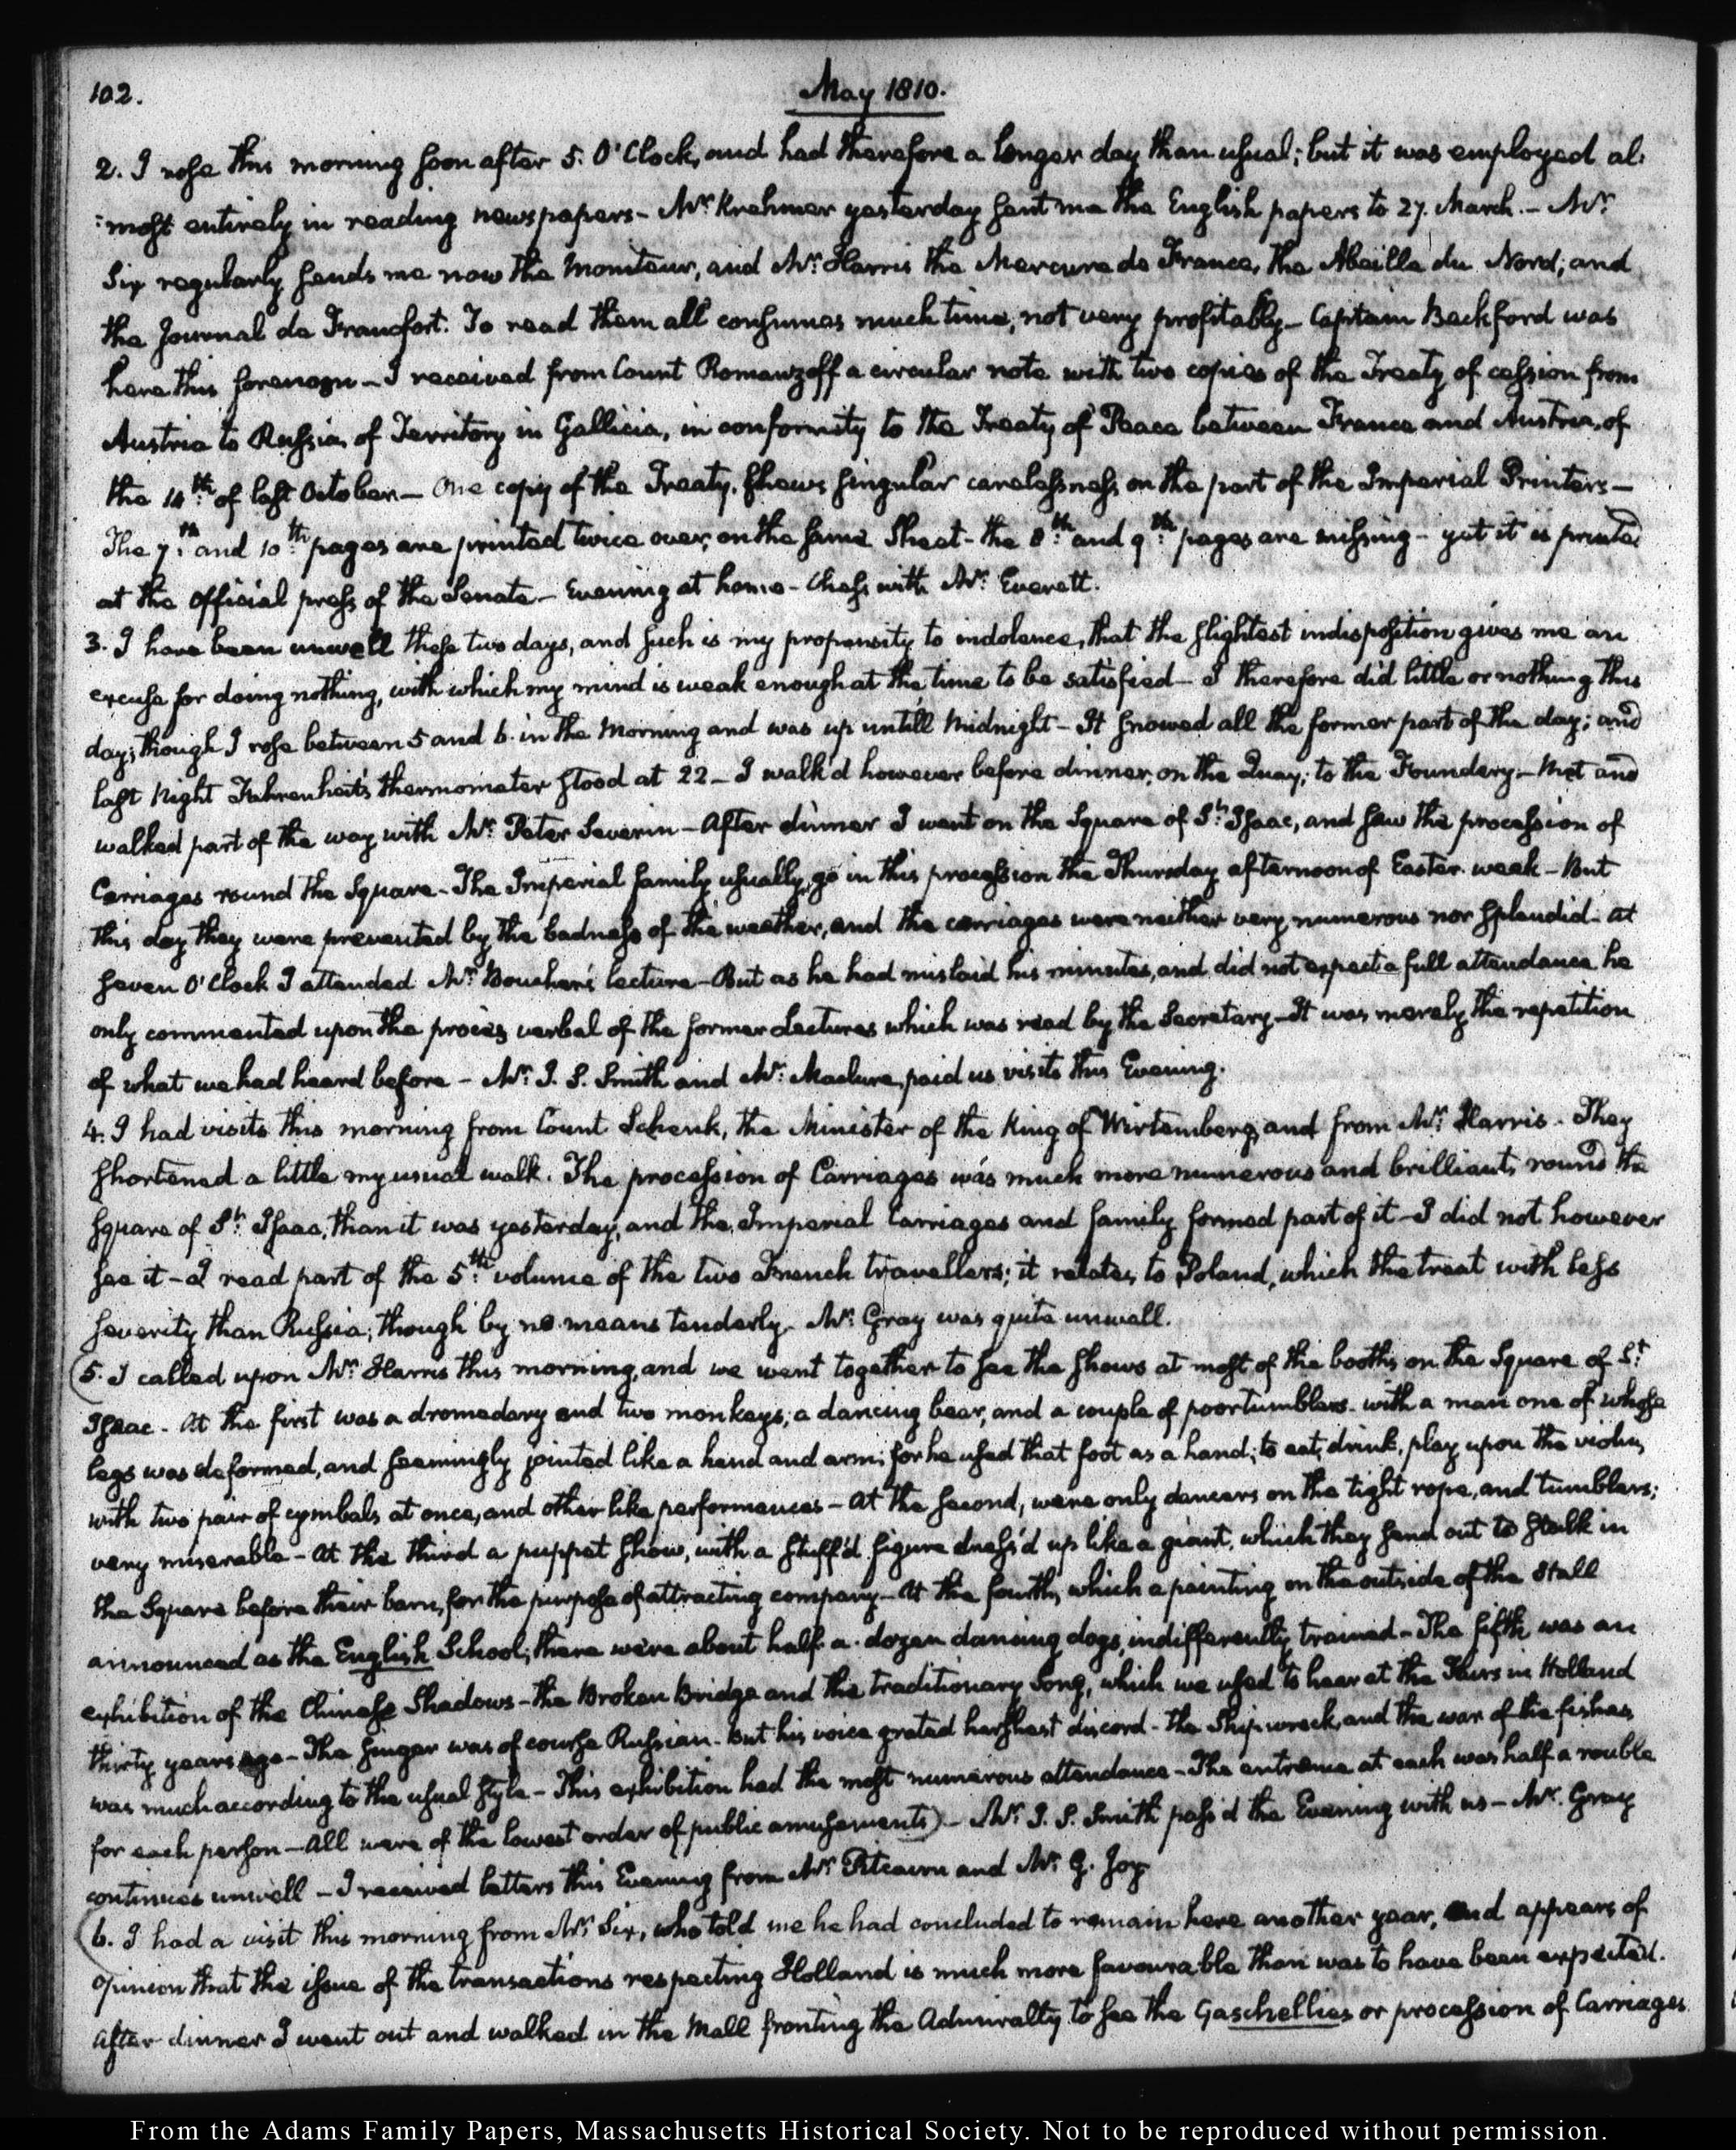 102.
May 1810.
2. I rose this morning soon after 5. O'Clock, and had therefore a longer day than usual; but it was employed al:
:most entirely in reading newspapers- Mr. Krehmer yesterday sent me the English papers to 27. March.- Mr.
Six regularly sends me now the Moniteur, and Mr. Harris the Mercure de France, the Abeille du Nord, and
the Journal de Francfort. To read them all consumes much time, not very profitably- Captain Beckford was
here this forenoon- I received from Count Romanzoff a circular note with two copies of the Treaty of cession from
Austria to Russia, of Territory in Gallicia, in conformity to the Treaty of Peace between France and Austria, of
the 14th. of last October- One copy of the Treaty, shews singular carelessness on the part of the Imperial Printers-
The 7th. and 10th. pages are printed twice over, on the same Sheet- the 8th. and 9th. pages are missing- yet it is printed
at the official press of the Senate- Evening at home- Chess with Mr. Everett.
3. I have been unwell these two days, and such is my propensity to indolence, that the slightest indisposition gives me an
excuse for doing nothing, with which my mind is weak enough at the time to be satisfied- I therefore did little or nothing this
day; though I rose between 5 and 6. in the Morning and was up untill Midnight- It snowed all the former part of the day; and
last Night Fahrenheit's thermometer stood at 22- I walk'd however before dinner, on the Quay, to the Foundery,- Met and
walked part of the way with Mr. Peter Severin- After dinner I went on the Square of St. Isaac, and saw the procession of
Carriages round the Square- The Imperial family usually go in this procession the Thursday afternoon of Easter week- But
this day they were prevented by the badness of the weather, and the carriages were neither very numerous nor splendid- At
seven O'Clock I attended Mr. lecture- But as he had mislaid his minutes, and did not expect a full attendance he
only commented upon the procès verbal of the former Lectures which was read by the Secretary- It was merely the repetition
of what we had heard before- Mr. J. S. Smith and Mr. Maclure, paid us visits this Evening.
4. I had visits this morning from Count Schenk, the Minister of the King of Wirtemberg, and from Mr. Harris- They
shortened a little my usual walk. The procession of Carriages was much more numerous and brilliant, round the
square of St. Isaac, than it was yesterday, and the Imperial Carriages and family formed part of it- I did not however
see it- I read part of the 5th. volume of the two French travellers; it relates to Poland, which the treat with less
severity than Russia; though by no means tenderly- Mr. Gray was quite unwell.
(5. I called upon Mr. Harris this morning, and we went together to see the shows at most of the booths on the Square of St.
Isaac- At the first was a dromedary and two monkeys, a dancing bear, and a couple of poor tumblers- with a man one of whose
legs was deformed, and seemingly jointed like a hand and arm; for he used that foot as a hand; to eat, drink, play upon the violin,
with two pair of cymbals at once, and other like performances- At the second, were only dancers on the tight rope, and tumblers;
very miserable- At the third a puppet show, with a stuff'd figure dress'd up like a giant, which they send out to stalk in
the Square before their barn, for the purpose of attracting company- At the fourth, which a painting on the outside of the Stall
announced as the English School, there were about half a dozen dancing dogs, indifferently trained- The fifth was an
exhibition of the Chinese Shadows- the Broken Bridge and the traditionary Song, which we used to hear at the Fairs in Holland
thirty years ago- The singer was of course Russian- But his voice grated harshest discord- the Shipwreck, and the war of the fishes,
was much according to the usual style- This exhibition had the most numerous attendance- The entrance at each was half a rouble
for each person- All were of the lowest order of public amusements)- Mr. J. S. Smith pass'd the Evening with us- Mr. Gray
continues unwell- I received letters this Evening from Mr. Pitcairn and Mr. G. Joy
(6. I had a visit this morning from Mr. Six, who told me he had concluded to remain here another year, and appears of
opinion that the issue of the transactions respecting Holland is much more favourable than was to have been expected.
After dinner I went out and walked in the Mall fronting the Admiralty to see the Gaschellies or procession of Carriages
From the Adams Family Papers, Massachusetts Historical Society. Not to be reproduced without permission.